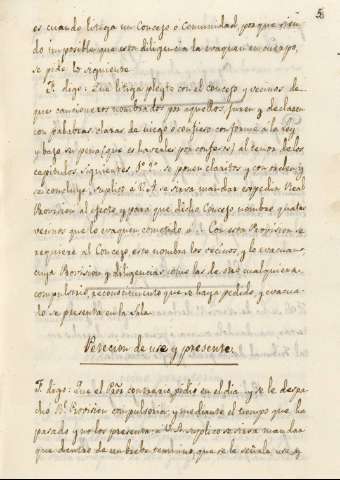 5
es cuando litiga un Concejo o Comunidad, porque sien
do imposible que esta diligencia la evaquen en cuerpo,
se pide lo siguiente
F. digo: Que litiga pleyto con el concejo y vecinos de
que cancioneros nombrados por aquellos juren y declaren
con palabras claras de niego o confieso conforme a la ley
y bajo su pena (que es haverles por confesos) al tenor de los
capitulos siguientes se ponen claritos y con orden y
se concluye, suplico a V.A. se sirva mandar expedir Real
Provision al efecto, y para que dicho Concejo nombre quatro
vecinos que lo evaquen cometido a Con esta Provision se
requiere al Concejo este nombra los vecinos, y lo evacuan,
cuya Provision y diligencias como las de otra cualquiera
compulsorio, reconocimiento que se haya pedido, y evacua
do se presenta en la Sala.
Peticion de use y presente.
F. digo: Que el contrario pidio en el dia y se le despa
cho Rl. Provision compulsoria y mediante el tiempo que ha
pasado y no los presenta a V.A. suplico se sirva mandar
que dentro de un breve termino, que se le señala use, y